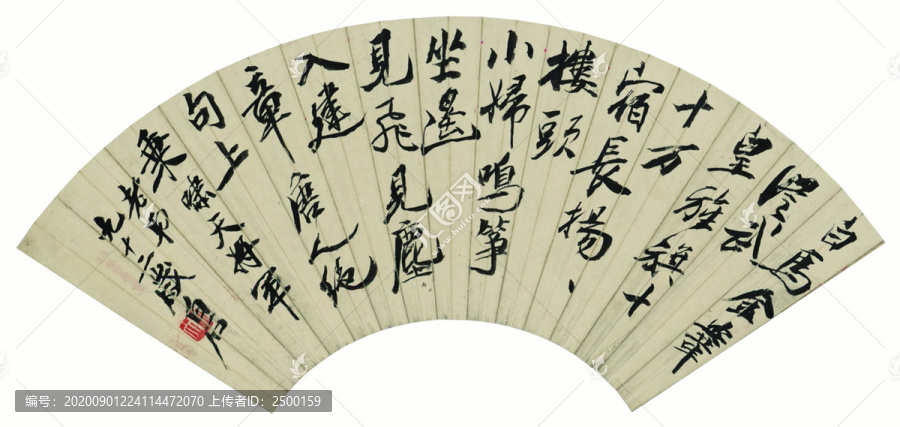 白馬金鞍
從武
皇旌旗十
十万
宿長揚、
樓頭
小婦鳴箏
坐遙
見飛見塵
入建
章
唐人绝
句上
乘
燦天将軍
老弟
九十二歲白石
编号:20200901224114472070 上传者ID:2500159